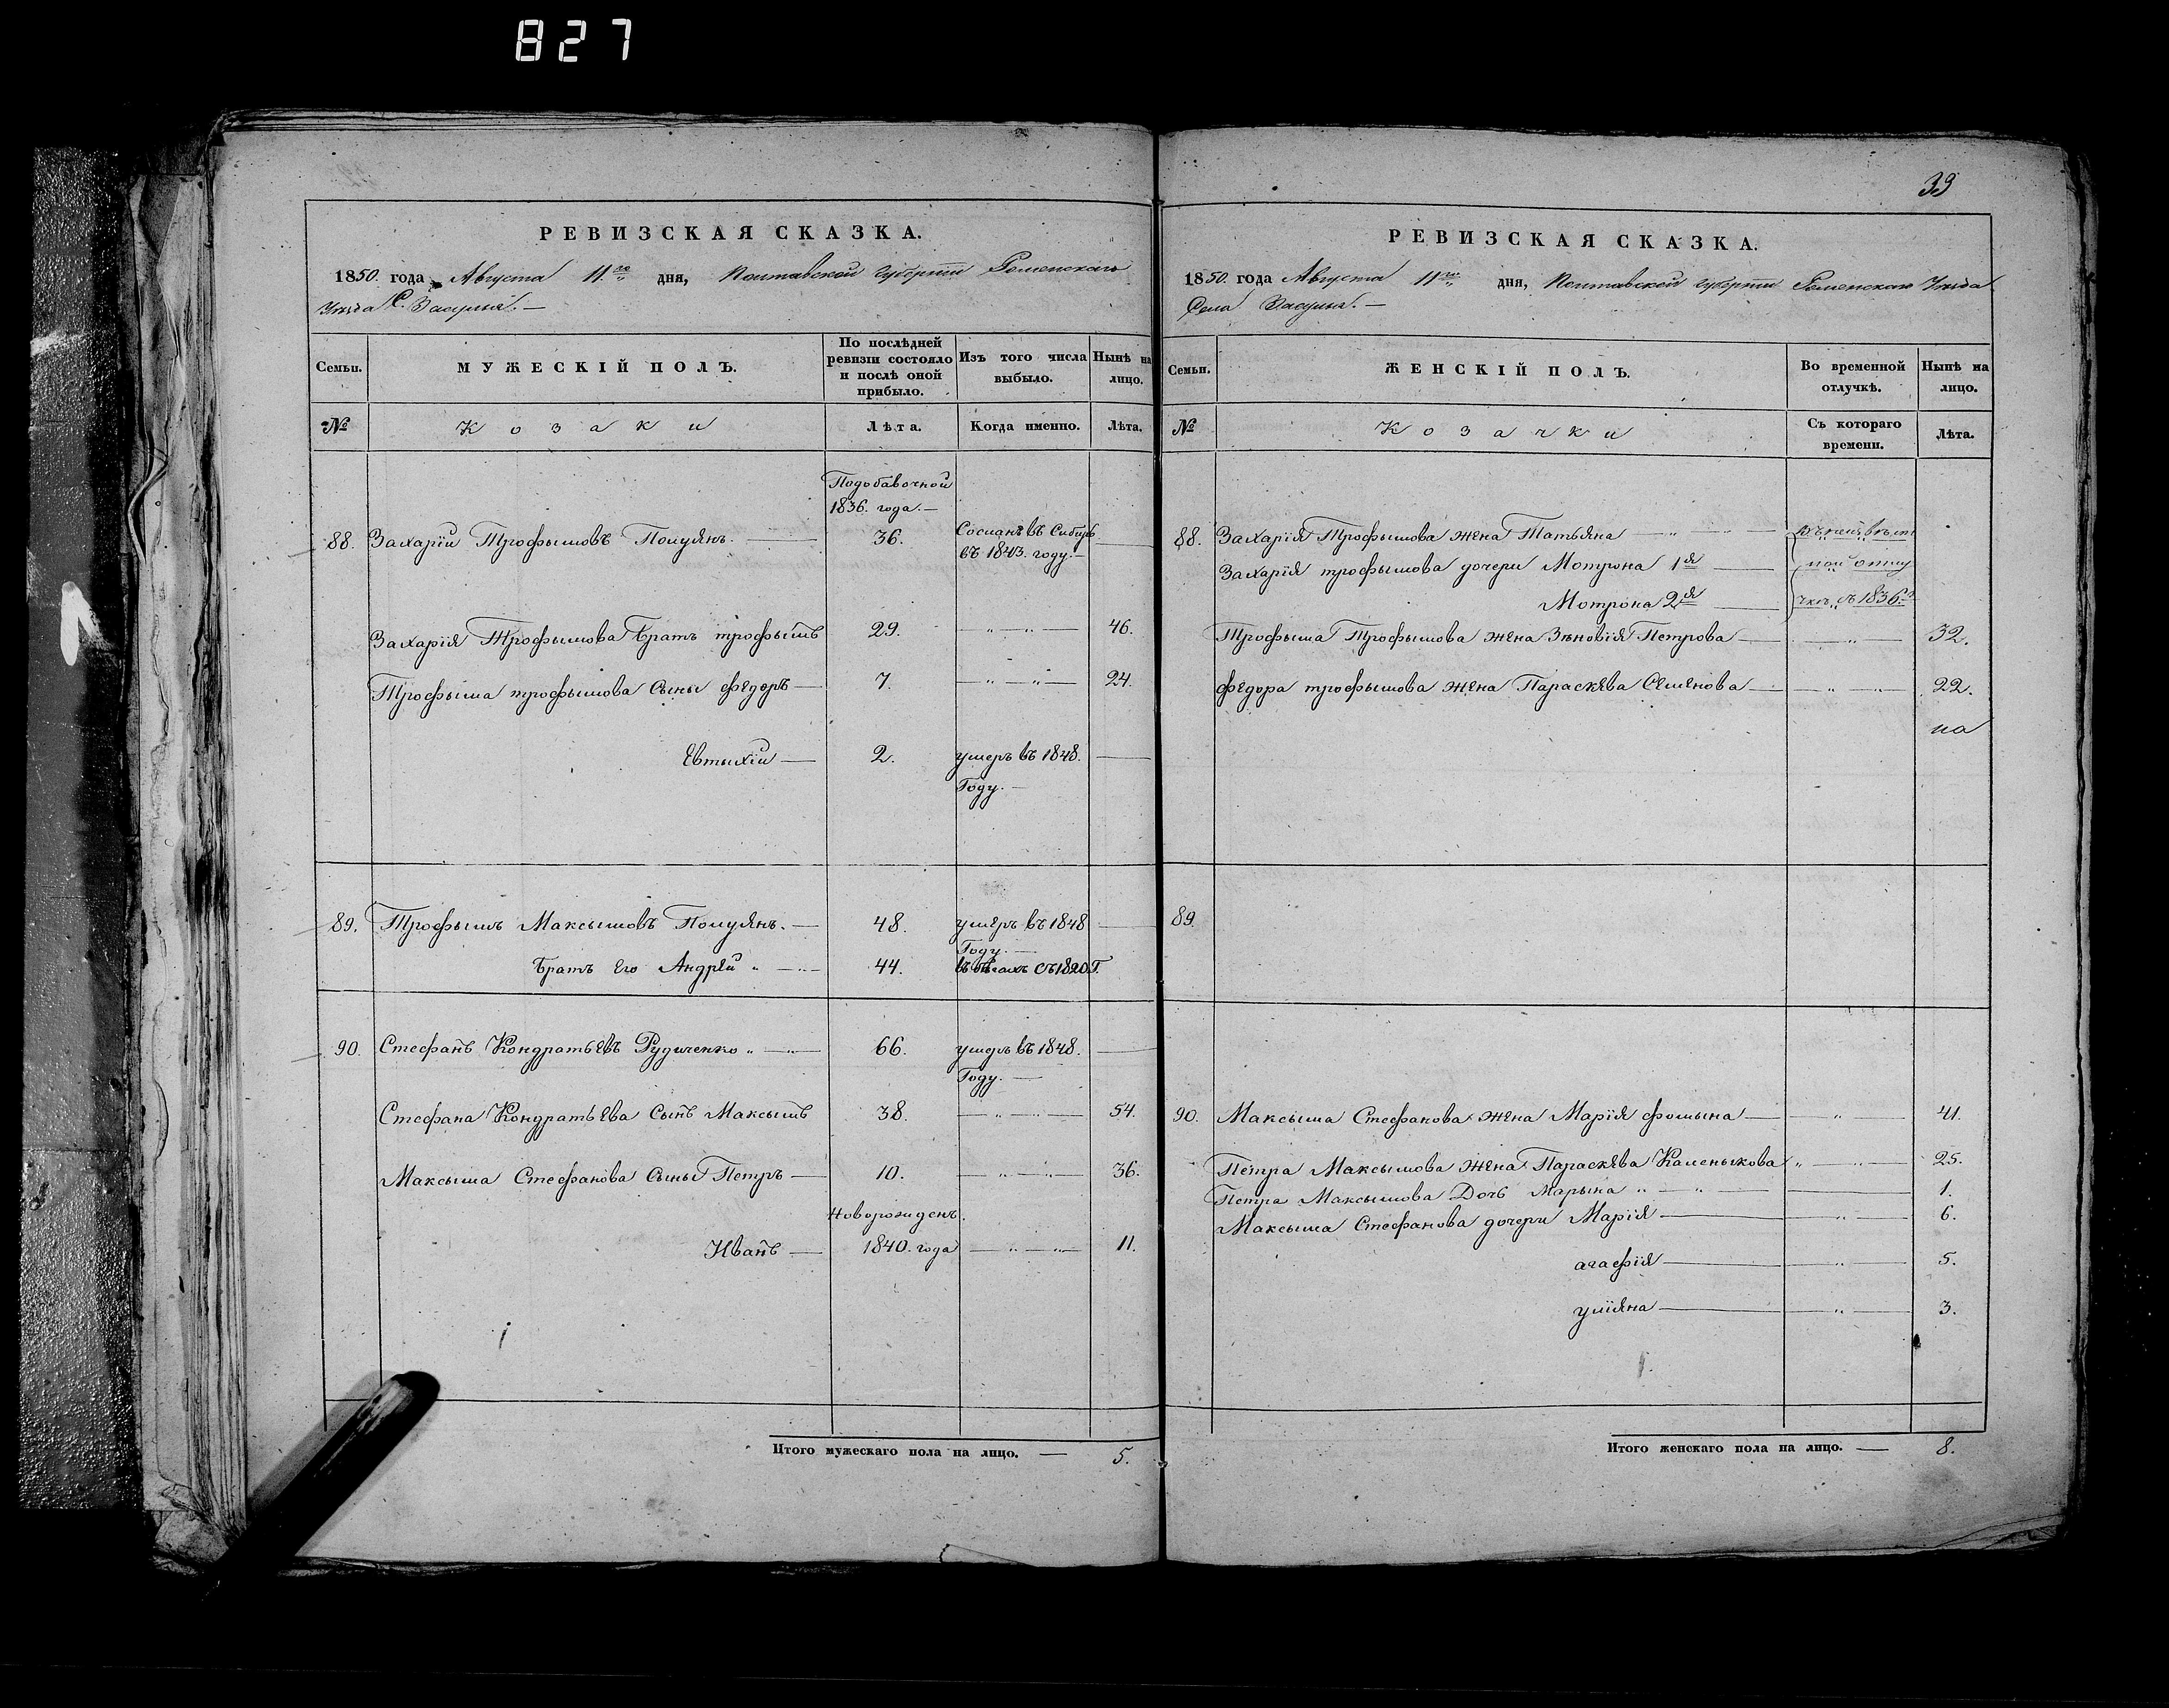 827
39
РЕВИЗСКАЯ СКАЗКА.
1850. года Августа 11го дня, Полтавской Губерніи Роменскаго
Уѣзда С. Засулья. —
Семьи.
МУЖЕСКІЙ ПОЛЪ.
По послѣдней ревизіи состояло и послѣ оной прибыло.
Изъ того числа выбыло.
Нынѣ на лицо.
№
Козаки
Лѣта.
Когда именно.
Лѣта.
Подобавочной
1836. года. —
88. Захарій Трофымовъ Полуянъ. — 36. Сосланъ въ Сибирь
въ 1843. году. —
Захарія Трофымова братъ трофымъ 29. — „ — „ — 46.
Трофыма трофымова сыны федоръ — 7. — „ — „ — 24.
Евтыхій — 2. умеръ въ 1848. —
Году. —
89. Трофымъ Максымовъ Полуянъ. — 48. умеръ въ 1848 —
Году. —
братъ его Андрей „ — 44. въ бѣгахъ съ 1820. Г.
90. Стефанъ Кондратьевъ Рудченко „ — 66. умеръ въ 1848. —
Году. —
Стефана Кондратьева сынъ Максымъ 38. — „ — 54.
Максыма Стефанова сыны Петръ — 10. — „ — 36.
Новорожденъ.
Иванъ — 1840. года — „ — „ — 11.
Итого мужескаго пола на лицо. — 5.
РЕВИЗСКАЯ СКАЗКА.
1850. года Августа 11го дня, Полтавской Губерніи Роменскаго Уѣзда
Села Засулья. —
Семьи.
ЖЕНСКІЙ ПОЛЪ.
Во временной отлучкѣ.
Нынѣ на лицо.
№
Козачки
Съ котораго времени.
Лѣта.
88. Захарія Трофымова жена Татьяна — „ —
Захарія трофымова дочери Мотрона 1я —
Мотрона 2я — съ 1836.
Трофыма Трофымова жена Зѣновія Петрова — „ — 32.
федора трофымова жена Параскева Семенова — „ — „ — 22.
на
89.
90. Максыма Стефанова жена Марія фомына — „ — 41.
Петра Максымова жена Параскева Каленыкова „ — 25.
Петра Максымова Дочь Марына „ — „ — 1.
Максыма Стефанова дочери Марія — „ — 6.
агафія — „ — 5.
уліяна — „ — 3.
Итого женскаго пола на лицо. — 8.